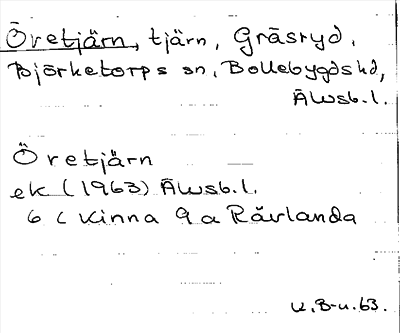 Öretjärn, tjärn, Gräsryd,
Björketorps sn, Bollebygds hd,
Älvsb. l.
Öretjärn
ek (1963) Älvsb. l.
6 C Kinna 9 a Rävlanda
K. B-u. 63.